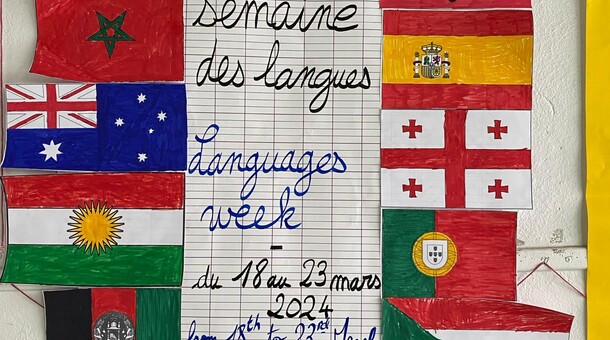 semaine
des langues
Languages
week
-
du 18 au 23 mars
2024
from 18th to 23rd March